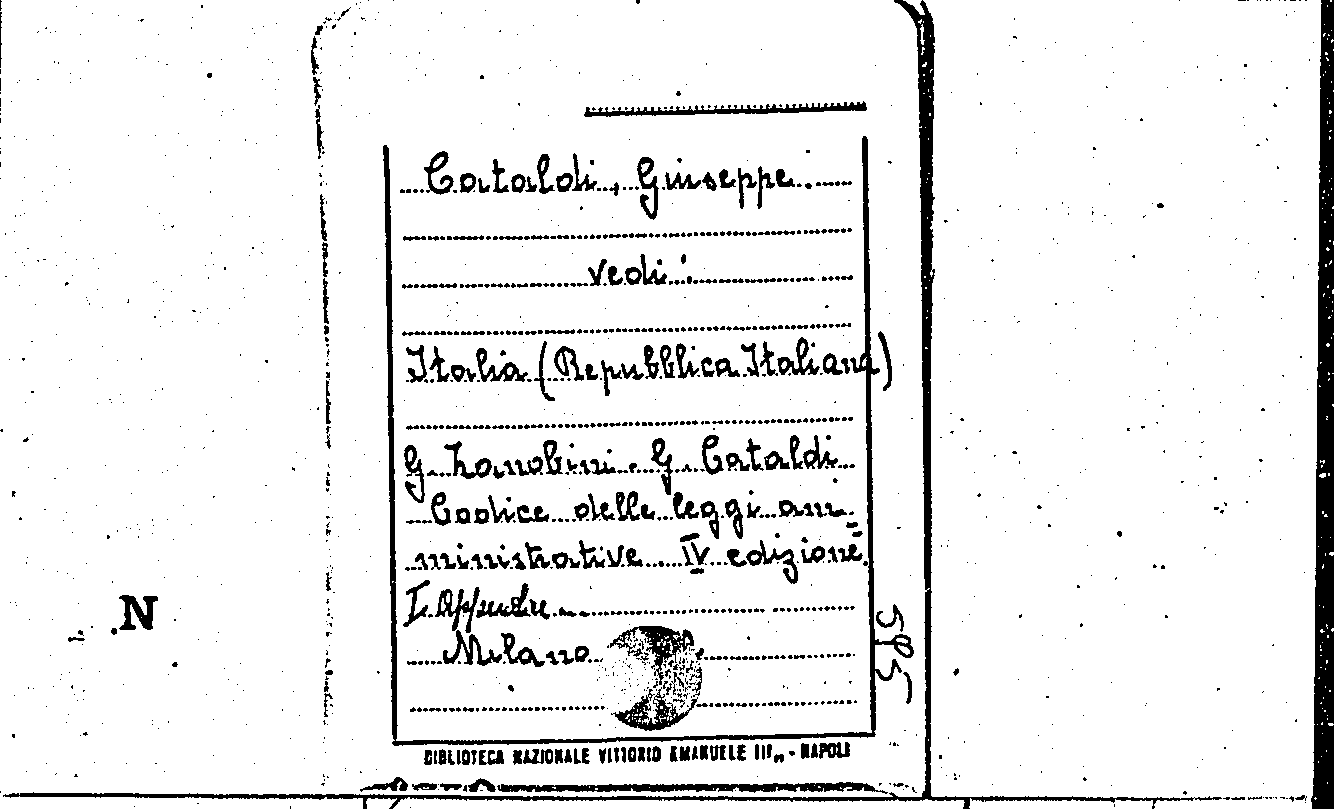 Cataldi, Giuseppe.
vedi:
Italia (Repubblica Italiana)
G. Zanobini. G. Cataldi
Codice delle leggi am-
ministrative. IV edizione.
I. Appendice
Milano
595
N
BIBLIOTECA NAZIONALE VITTORIO EMANUELE III„ - NAPOLI